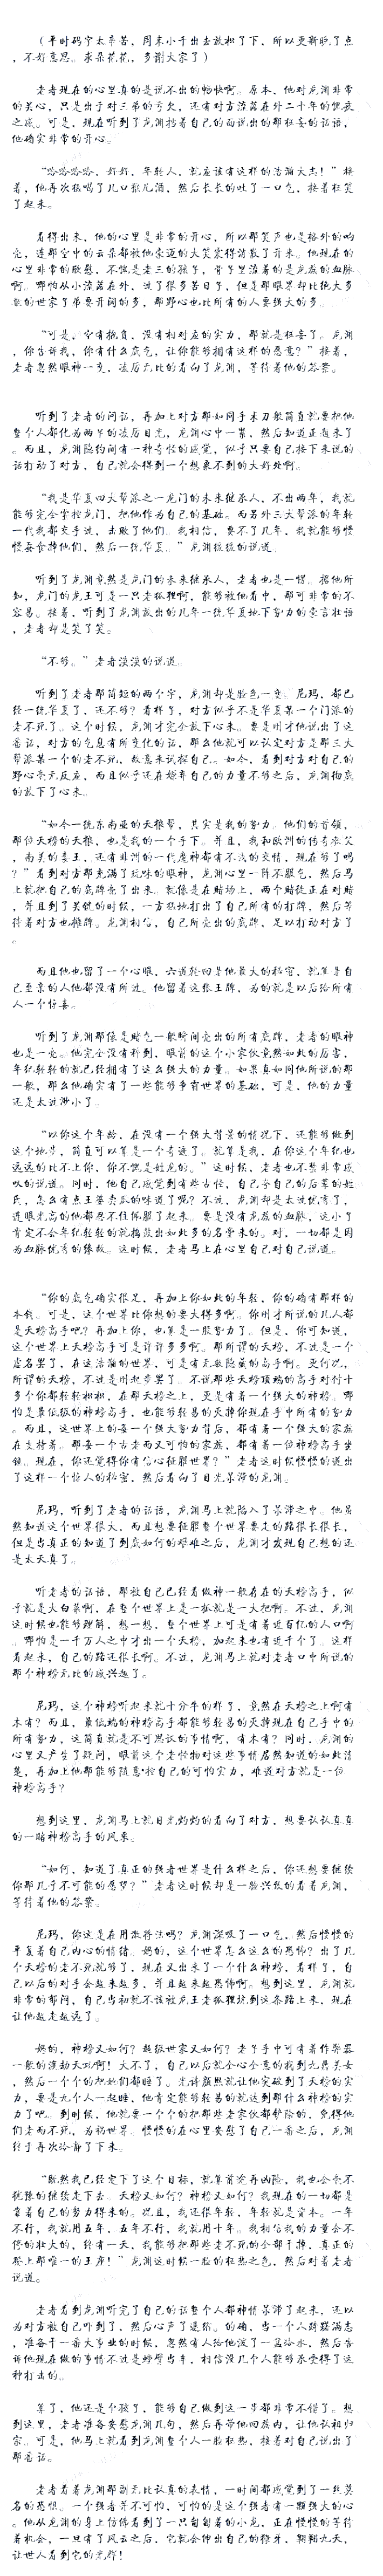 （平时码字太辛苦，周末小千出去放松了下，所以更新晚了点
，不好意思。求朵花花，多谢大家了）
老者现在的心里真的是说不出的畅快啊。原本，他对龙渊非常
的关心，只是出于对三弟的亏欠，还有对方流落在外二十年的愧疚
之感。可是，现在听到了龙渊当着自己的面说出的那狂妄的话语，
他确实非常的开心。
“哈哈哈哈，好好，年轻人，就应该有这样的浩瀚大志！”接
着，他再次猛喝了几口猴儿酒，然后长长的吐了一口气，接着狂笑
了起来。
看得出来，他的心里是非常的开心，所以那笑声也是格外的响
亮，连那空中的云朵都被他豪迈的大笑震得消散了开来。他现在的
心里非常的欣慰，不愧是老三的孩子，骨子里流着的是龙族的血脉
啊。哪怕从小流落在外，过了很多苦日子，但是那眼界却比绝大多
数的世家子弟要开阔的多，那野心也比所有的人要强大的多。
“可是，空有抱负，没有相对应的实力，那就是狂妄了。龙渊
，你告诉我，你有什么底气，让你能够拥有这样的愿意？”接着，
老者忽然眼神一变，凌厉无比的看向了龙渊，等待着他的答案。
听到了老者的问话，再加上对方那如同手术刀般简直就要把他
整个人都化为两半的凌厉目光，龙渊心中一紧，然后知道正题来了
。而且，龙渊隐约间有一种奇怪的感觉，似乎只要自己接下来说的
话打动了对方，自己就会得到一个想象不到的大好处啊。
“我是华夏四大帮派之一龙门的未来继承人，不出两年，我就
能够完全掌控龙门，把他作为自己的基础。而另外三大帮派的年轻
一代我都交手过，击败了他们。我相信，要不了几年，我就能够慢
慢吞食掉他们，然后一统华夏。”龙渊缓缓的说道。
听到了龙渊竟然是龙门的未来继承人，老者也是一愣。据他所
知，龙门的龙王可是一只老狐狸啊，能够被他看中，那可非常的不
容易。接着，听到了龙渊放出的几年一统华夏地下势力的豪言壮语
，老者却是笑了笑。
“不够。”老者淡淡的说道。
听到了老者那简短的两个字，龙渊却是脸色一变。尼玛，都已
经一统华夏了，还不够？看样子，对方似乎不是华夏某一个门派的
老不死了。这个时候，龙渊才完全放下心来。要是刚才他说出了这
番话，对方的气息有所变化的话，那么他就可以认定对方是那三大
帮派某一个的老不死，故意来试探自己。如今，看到对方对自己的
野心毫无反应，而且似乎还在嫌弃自己的力量不够之后，龙渊彻底
的放下了心来。
“如今一统东南亚的天狼帮，其实是我的势力。他们的首领，
那位天榜的天狼，也是我的一个手下。并且，我和欧洲的传奇
，南美的毒王，还有非洲的一代魔神都有不浅的交情，现在够了吗
？”看到对方那充满了玩味的眼神，龙渊心里一阵不服气，然后马
上就把自己的底牌亮了出来。就像是在赌场上，两个赌徒正在对赌
，并且到了关键的时候，一方猛地打出了自己所有的打牌，然后等
待着对方也摊牌。龙渊相信，自己所亮出的底牌，足以打动对方了
。
而且他也留了一个心眼，六道轮回是他最大的秘密，就算是自
己至亲的人他都没有所过。他留着这张王牌，为的就是以后给所有
人一个惊喜。
听到了龙渊那像是赌气一般瞬间亮出的所有底牌，老者的眼神
也是一亮。他完全没有料到，眼前的这个小家伙竟然如此的厉害，
年纪轻轻的就已经拥有了这么强大的力量。如果真如同他所说的那
一般，那么他确实有了一些能够争霸世界的基础，可是，他的力量
还是太过渺小了。
“以你这个年龄，在没有一个强大背景的情况下，还能够做到
这个地步，简直可以算是一个奇迹了。就算是我，在你这个年纪也
远远的比不上你，你不愧是姓龙的。”这时候，老者也不禁非常感
叹的说道。同时，他自己感觉到有些古怪，自己夸自己的后辈的姓
氏，怎么有点王婆卖瓜的味道了呢？不过，龙渊却是太过优秀了，
连眼光高的他都忍不住佩服了起来。要是没有龙族的血脉，这小子
肯定不会年纪轻轻的就捣鼓出如此多的名堂来的。对，一切都是因
为血脉优秀的缘故。这时候，老者马上在心里自己对自己说道。
“你的底气确实很足，再加上你如此的年轻，你的确有那样的
本钱。可是，这个世界比你想的要大得多啊。你刚才所说的几人都
是天榜高手吧？再加上你，也算是一股势力了。但是，你可知道，
这个世界上天榜高手可是许许多多啊。那所谓的天榜，不过是一个
虚名罢了，在这浩瀚的世界，可是有无数隐藏的高手啊。更何况，
所谓的天榜，不过是刚起步罢了。不说那些天榜顶端的高手对付十
多个你都轻轻松松，在那天榜之上，更是有着一个强大的神榜。哪
怕是最低级的神榜高手，也能够轻易的灭掉你现在手中所有的势力
。而且，这世界上的每一个强大势力背后，都有着一个强大的家族
在支持着。那每一个古老而又可怕的家族，都有着一位神榜高手坐
镇。现在，你还觉得你有信心征服世界？”老者这时候慢慢的道出
了这样一个惊人的秘密，然后看向了目光呆滞的龙渊。
尼玛，听到了老者的话语，龙渊马上就陷入了呆滞之中。他虽
然知道这个世界很大，而且想要征服整个世界要走的路很长很长，
但是当真正的知道了到底如何的艰难之后，龙渊才发现自己想的还
是太天真了。
听老者的话语，那被自己已经看做神一般存在的天榜高手，似
乎就是大白菜啊，在整个世界上是一抓就是一大把啊。不过，龙渊
这时候也能够理解，想一想，整个世界上可是有着近百亿的人口啊
，哪怕是一千万人之中才出一个天榜，加起来也有近千个了。这样
看起来，自己的路还很长啊。不过，龙渊马上就对老者口中所说的
那个神榜无比的感兴趣了。
尼玛，这个神榜听起来就十分牛的样子，竟然在天榜之上啊有
木有？而且，最低端的神榜高手都能够轻易的灭掉现在自己手中的
所有势力，这简直就是不可思议的事情啊，有木有？同时，龙渊的
心里又产生了疑问，眼前这个老怪物对这些事情居然知道的如此清
楚，再加上他那能够随意控自己的可怕实力，难道对方就是一位
神榜高手？
想到这里，龙渊马上就目光灼灼的看向了对方，想要认认真真
的一睹神榜高手的风采。
“如何，知道了真正的强者世界是什么样之后，你还想要继续
你那几乎不可能的愿梦？”老者这时候却是一脸兴致的看着龙渊，
等待着他的答案。
尼玛，你这是在用激将法吗？龙渊深吸了一口气，然后慢慢的
平复着自己内心的情绪。妈的，这个世界怎么这么的恐怖？出了几
个天榜的老不死就够了，现在又出来了一个什么神榜，看样子，自
己以后的对手会越来越多，并且越来越恐怖啊。想到这里，龙渊就
非常的郁闷，自己当初就不该被龙王老狐狸坑到这条路上来，现在
让他越走越远了。
妈的，神榜又如何？超级世家又如何？老子手中可有着作弊器
一般的滚动天功啊！大不了，自己以后就全心全意的找到九鼎美女
，然后一个个的把她们都睡了。光诗颜然就让他突破到了天榜的实
力，要是九个人一起睡，他肯定能够轻易的就达到那什么神榜的实
力了吧。到时候，他就要一个个的把那些老家伙都铲除的，免得他
们老而不死，为祸世界。慢慢的在心里安慰了自己一番之后，龙渊
终于再次冷静了下来。
“既然我已经定下了这个目标，就算前途再凶险，我也会毫不
犹豫的继续走下去。天榜又如何？神榜又如何？我现在的一切都是
靠着自己的努力得来的。况且，我还很年轻，年轻就是资本。一年
不行，我就用五年，五年不行，我就用十年。我相信我的力量会不
停的壮大的，终有一天，我能够把那些老不死的全部干掉，真正的
登上那唯一的王座！”龙渊这时候一脸的狂热之色，然后对着老者
说道。
老者看到龙渊听完了自己的话整个人都神情呆滞了起来，还以
为对方被自己吓到了，然后心声了退怯。的确，当一个人踌躇满志
，准备干一番大事业的时候，忽然有人给他泼了一盆冷水，然后告
诉他现在做的事情不过是螳臂当车，相信没几个人能够承受得了这
种打击的。
算了，他还是个孩子，能够自己做到这一步都非常不错了。想
到这里，老者准备安慰龙渊几句，然后再带他回族内，让他认祖归
宗。可是，他马上就看到龙渊整个人一脸狂热，接着对自己说出了
那番话。
老者看着龙渊那副无比认真的表情，一时间都感觉到了一丝莫
名的恐惧。一个强者并不可怕，可怕的是这个强者有一颗强大的心
。他从龙渊的身上仿佛看到了一只匍匐着的小龙，正在慢慢的等待
着机会，一旦有了风云之后，它就会伸出自己的獠牙，翱翔九天，
让世人看到它的光辉！